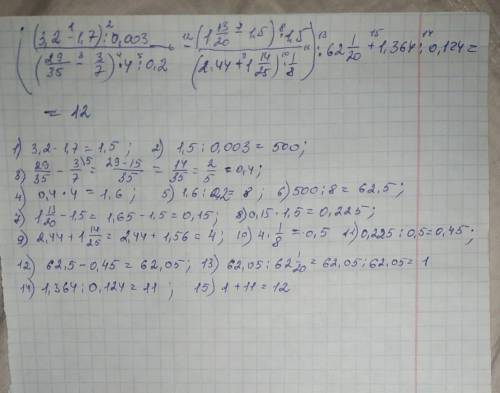 ( (3,2 - 1,7) : 0,003 / ((29/35 - 3/7) · 4 : 0,2) - (1 13/20 - 1,5) · 1,5 / ((2,44 + 1 14/25) · 1/8) ) : 62 1/20 + 1,364 : 0,124 =
= 12
1) 3,2 - 1,7 = 1,5 ; 2) 1,5 : 0,003 = 500;
3) 29/35 - 3/7 \5 = 29-15/35 = 14/35 = 2/5 = 0,4;
4) 0,4 · 4 = 1,6 ; 5) 1,6 : 0,2 = 8 ; 6) 500 : 8 = 62,5;
7) 1 13/20 - 1,5 = 1,65 - 1,5 = 0,15; 8) 0,15 · 1,5 = 0,225;
9) 2,44 + 1 14/25 = 2,44 + 1,56 = 4; 10) 4 · 1/8 = 0,5 11) 0,225 : 0,5 = 0,45;
12) 62,5 - 0,45 = 62,05; 13) 62,05 : 62 1/20 = 62,05 : 62,05 = 1
14) 1,364 : 0,124 = 11 ; 15) 1 + 11 = 12